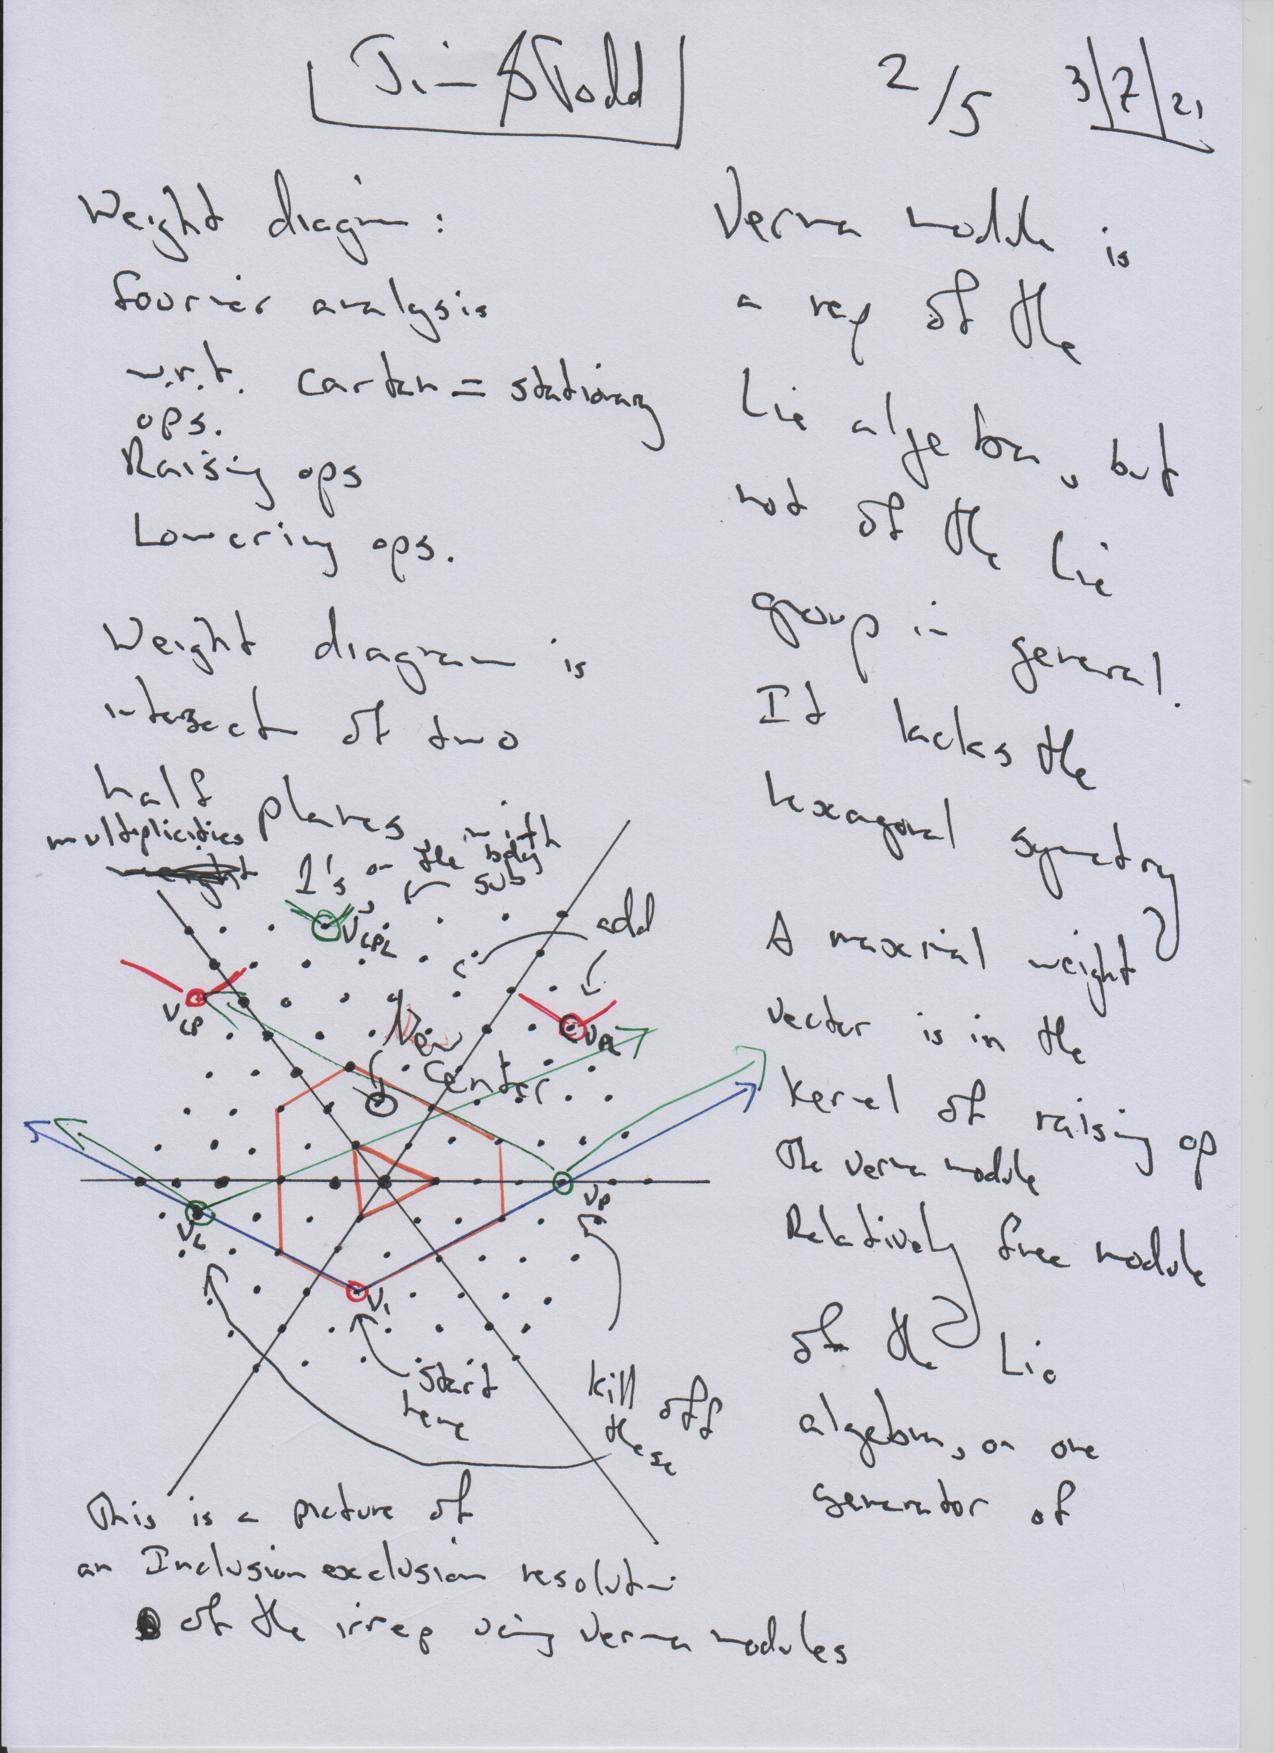 Jim & Todd
2/5
3/7/21
Weight diagram:
fourier analysis
w.r.t. cartan = stationary
ops.
Raising ops
Lowering ops.
Weight diagram is
intersect of two
half planes
multiplicities
1's on the bdy
sub
add
VLPL
VLP
VPL
New
center
VL
VP
V1
start
here
kill off
these
This is a picture of
an Inclusion exclusion resolution
of the irrep using verma modules
Verma module is
a rep of the
Lie algebra, but
not of the Lie
group in general.
It lacks the
hexagonal symetry
A maximal weight
vector is in the
kernel of raising op
The verma module
Relatively free module
of the Lie
algebra, on one
generator of